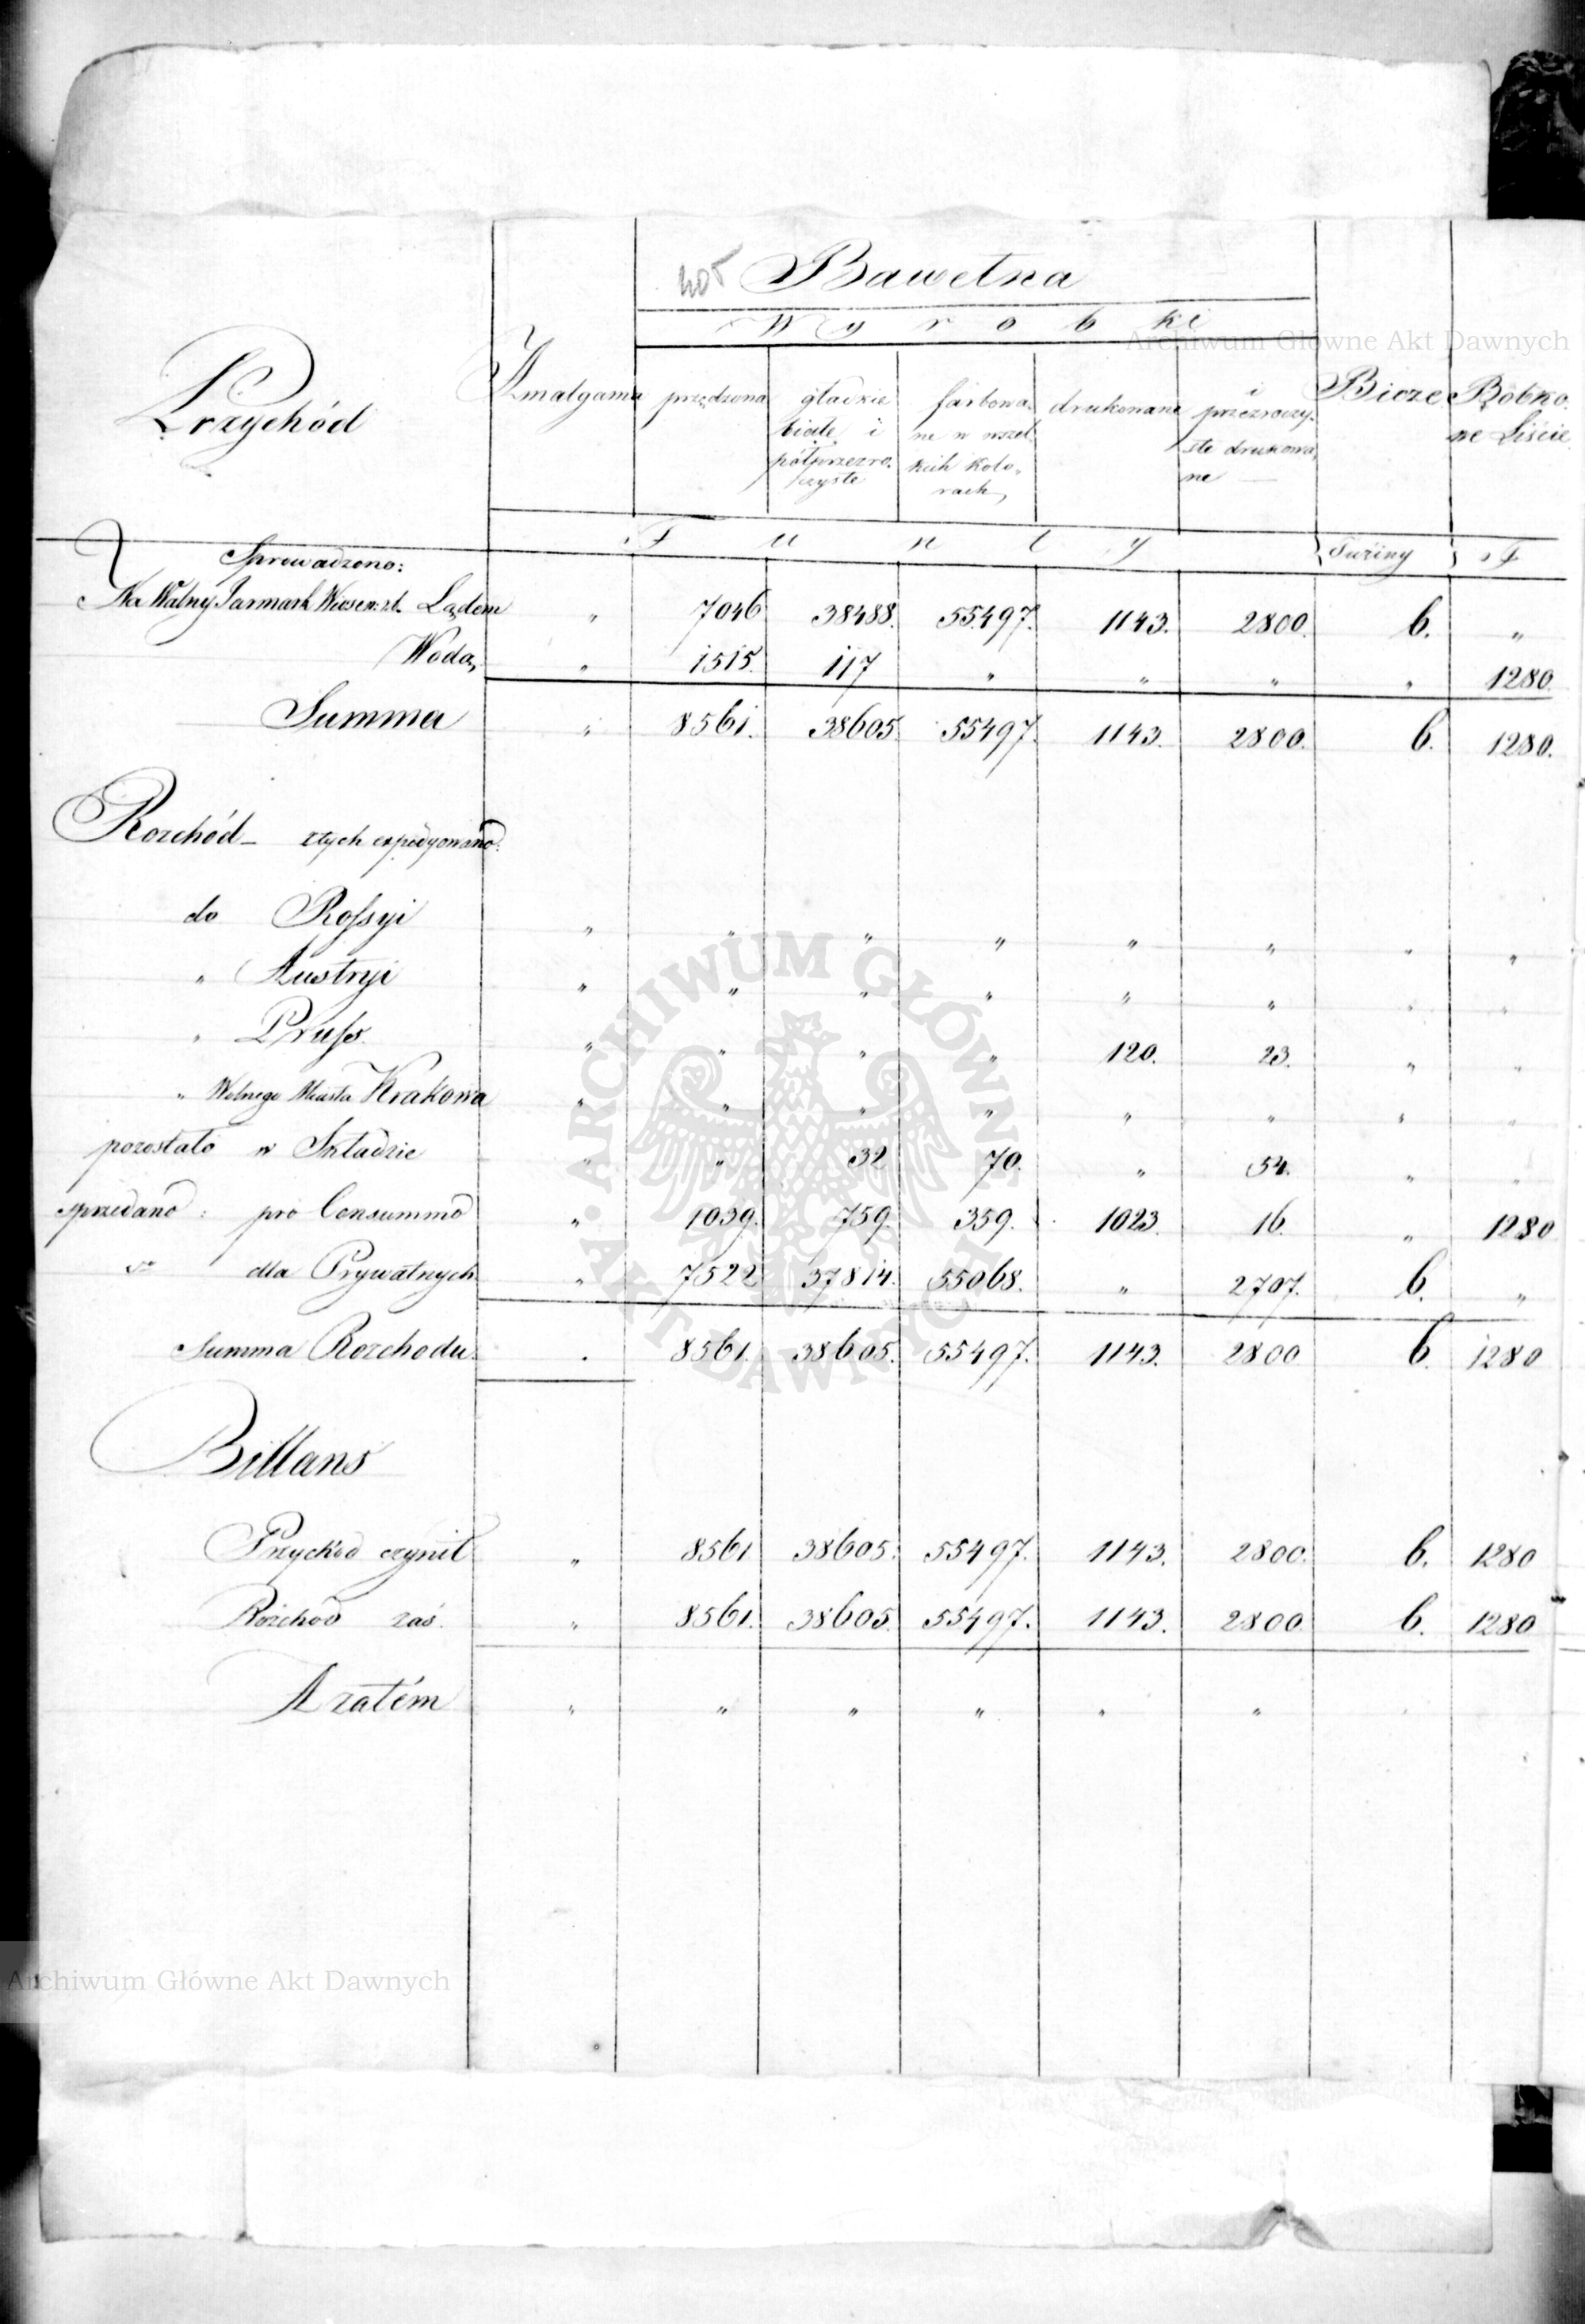 Bawełna
Wyrobki
Przychód
Amalgama
przędzona
gładkie białe i półprzezroczyste
farbowane w wszelkich kolorach
drukowane
i przezroczyste drukowane
Bicze
Bobkowe Liście
Funty
Tuziny
F
Sprowadzono:
Na Walny Jarmark Wiosen: zł. Lądem " 7046 38488. 55497. 1143. 2800. 6. "
Wodą " 1515. 117 " " " " 1280
Summa " 8561. 38605. 55497. 1143. 2800. 6. 1280.
Rozchód – z tych expedyowano:
do Rossyi " " " " " " " "
" Austryi " " " " " " " "
" Pruss. " " " " 120. 23. " "
" Wolnego Miasta Krakowa " " " " " " " "
pozostało w Składzie " " 32 70. " 54. " "
sprzedano: pro Consummo " 1039. 759. 359. 1023. 16. " 1280
dla Prywatnych " 7522 37814. 55068. " 2707. 6. "
Summa Rozchodu . 8561. 38605. 55497. 1143. 2800 6. 1280
Billans
Przychód czynił " 8561 38605. 55497. 1143. 2800. 6. 1280
Rozchód zaś. " 8561. 38605. 55497. 1143. 2800. 6. 1280
A zatém " " " " " "
Archiwum Główne Akt Dawnych
ARCHIWUM GŁÓWNE AKT DAWNYCH
Archiwum Główne Akt Dawnych